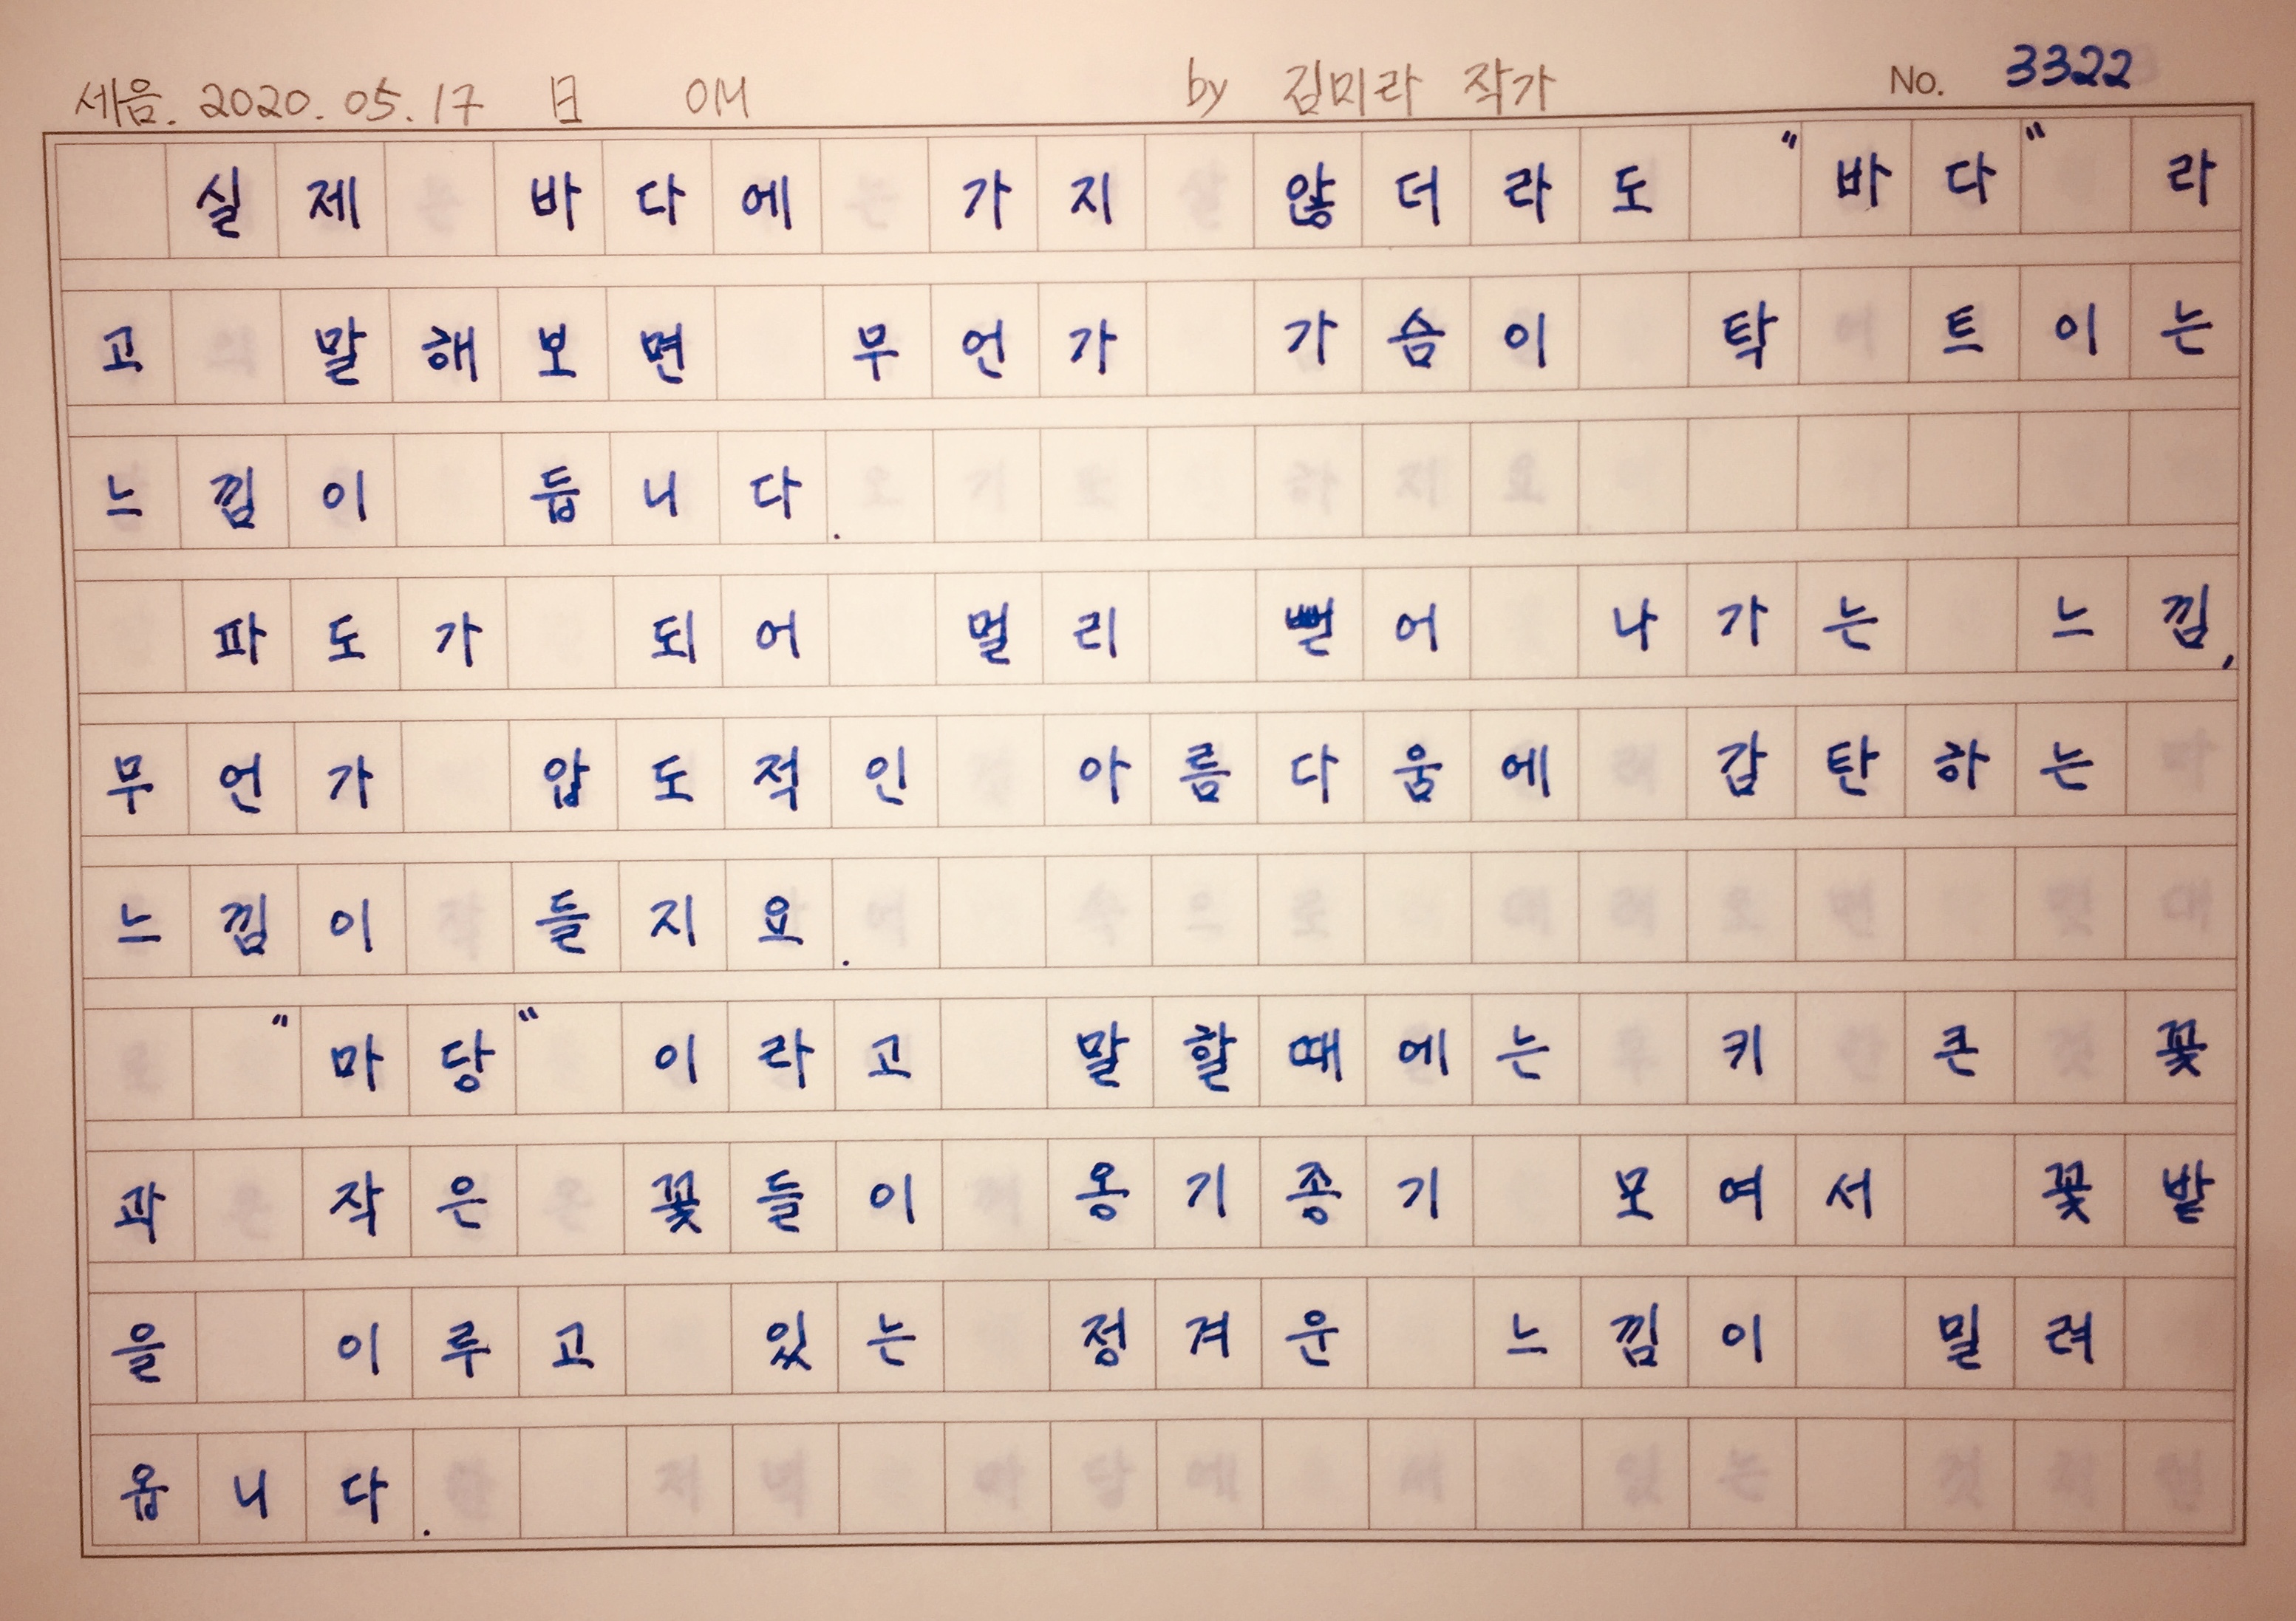 세음. 2020. 05. 17 日 OM by 김미라 작가 No. 3322
실제 바다에 가지 않더라도 "바다" 라
고 말해보면 무언가 가슴이 탁 트이는
느낌이 듭니다.
파도가 되어 멀리 뻗어 나가는 느낌,
무언가 압도적인 아름다움에 감탄하는
느낌이 들지요.
"마당" 이라고 말할때에는 키 큰 꽃
과 작은 꽃들이 옹기종기 모여서 꽃밭
을 이루고 있는 정겨운 느낌이 밀려
옵니다.